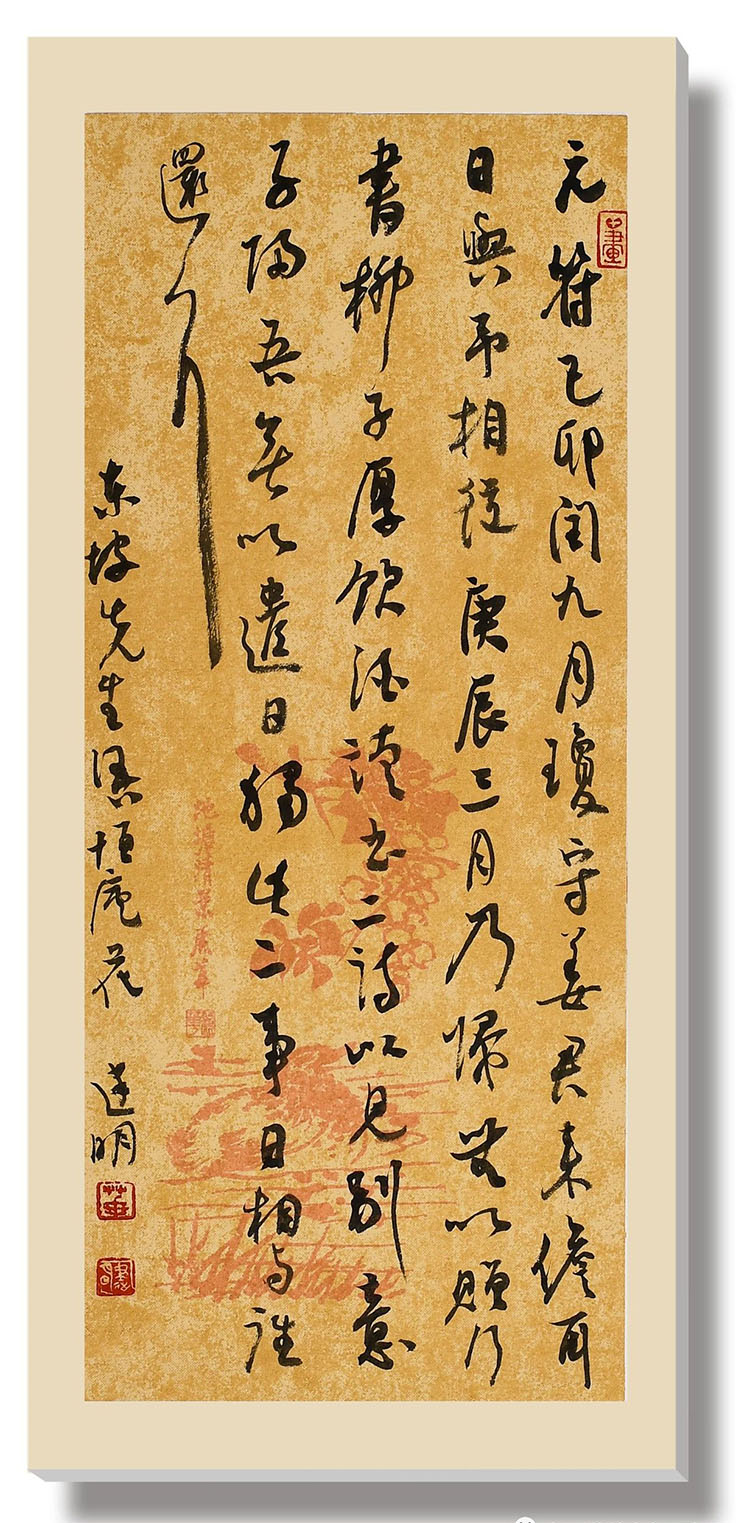 元符己卯閏九月瓊守姜君来儋耳
日與予相從庚辰三月乃歸無以贈行
書柳子厚飲酒讀書二詩以見別意
子歸吾無以遣日獨此二事日相与往
還耳
東坡先生 恒庵 達明
池塘清